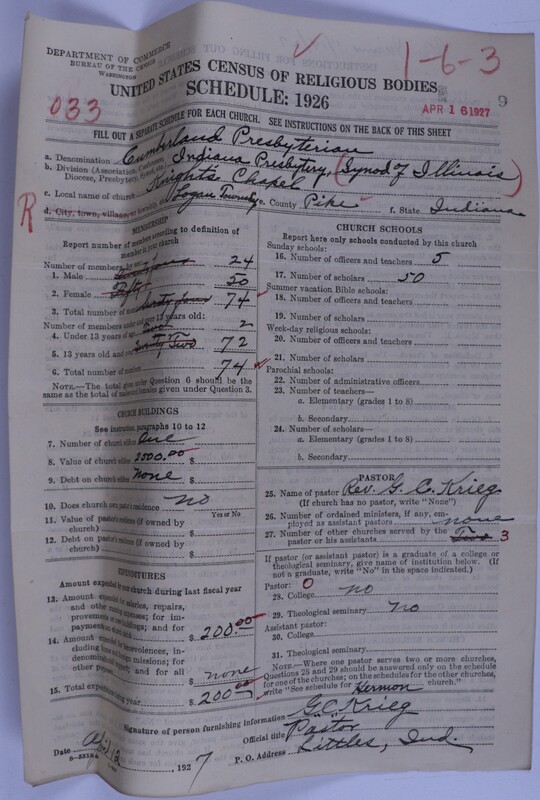 DEPARTMENT OF COMMERCE
BUREAU OF THE CENSUS
WASHINGTON
1-6-3
UNITED STATES CENSUS OF RELIGIOUS BODIES
SCHEDULE: 1926
033
APR 16 1927
9
FILL OUT A SEPARATE SCHEDULE FOR EACH CHURCH. SEE INSTRUCTIONS ON THE BACK OF THIS SHEET
a. Denomination Cumberland Presbyterian
b. Division (Association, Diocese, Presbytery, Synod, etc.) Indiana Presbytery, (Synod of Illinois)
c. Local name of church Knights Chapel
R
d. City, town, village, or township Logan Township e. County Pike f. State Indiana
MEMBERSHIP
Report number of members according to definition of member in your church
Number of members, by sex:
1. Male 24
2. Female Fifty 50
3. Total number of members 74
Number of members under and over 13 years old:
4. Under 13 years of age Two 2
5. 13 years old and over 72
6. Total number of members 74
NOTE.—The total given under Question 6 should be the same as the total of males and females given under Question 3.
CHURCH BUILDINGS
See instruction, paragraphs 10 to 12
7. Number of church edifices One
8. Value of church edifices 2500.00 $
9. Debt on church edifices None $
10. Does church own pastor's residence no
Yes or No
11. Value of pastor's residence (if owned by church) $
12. Debt on pastor's residence (if owned by church) $
EXPENDITURES
Amount expended by your church during last fiscal year
13. Amount expended for salaries, repairs, and other running expenses; for improvements or new buildings; and for payments on church debt $ 200.00
14. Amount expended for benevolences, including home and foreign missions; for denominational support; and for all other purposes $ none
15. Total expenditures during year $ 200.00
CHURCH SCHOOLS
Report here only schools conducted by this church
Sunday schools:
16. Number of officers and teachers 5
17. Number of scholars 50
Summer vacation Bible schools:
18. Number of officers and teachers
19. Number of scholars
Week-day religious schools:
20. Number of officers and teachers
21. Number of scholars
Parochial schools:
22. Number of administrative officers
23. Number of teachers—
a. Elementary (grades 1 to 8)
b. Secondary
24. Number of scholars—
a. Elementary (grades 1 to 8)
b. Secondary
PASTOR
25. Name of pastor Rev. G. C. Krieg
(If church has no pastor, write "None")
26. Number of ordained ministers, if any, employed as assistant pastors none
27. Number of other churches served by the pastor or his assistants Two 3
If pastor (or assistant pastor) is a graduate of a college or theological seminary, give name of institution below. (If not a graduate, write "No" in the space indicated.)
Pastor: 0
28. College no
29. Theological seminary no
Assistant pastor:
30. College
31. Theological seminary
NOTE.—Where one pastor serves two or more churches, Questions 28 and 29 should be answered only on the schedule for one of the churches; on the schedules for the other churches, write "See schedule for Hermon church."
Signature of person furnishing information G C Krieg
Official title "Pastor"
Date 12, 1927
P. O. Address Littles, Ind.